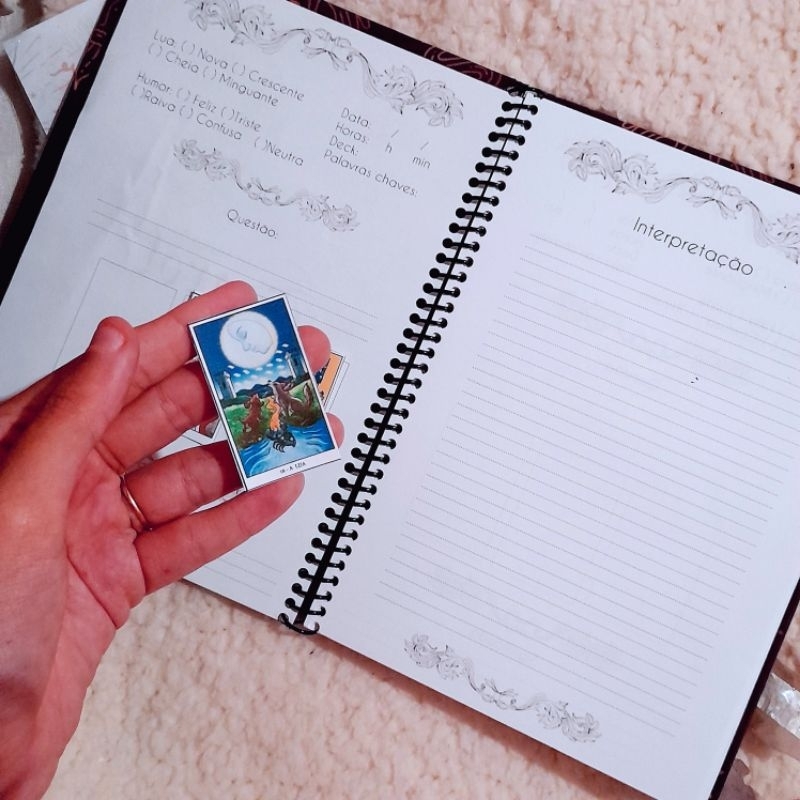 Lua: ( ) Nova ( ) Crescente
( ) Cheia ( ) Minguante
Humor: ( ) Feliz ( )Triste
( )Raiva ( ) Confusa ( )Neutra
Data: / /
Horas: h min
Deck:
Palavras chaves:
Questão:
18 - A LUA
Interpretação